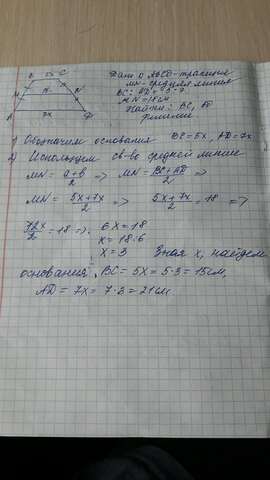 B 5x C
Дано: ABCD-трапеция
MN-средняя линия
M 18 N
BC:AD = 5:7
MN=18см
A 7x D
Найти: BC, AD
Решение
1) Обозначим основания BC=5x, AD=7x
2) Используем св-во средней линии
MN = a+b/2 => MN = BC+AD/2 =>
MN = 5x+7x/2 => 5x+7x/2 = 18 =>
12x/2 = 18 => 6x=18
x = 18:6
x = 3 Зная x, найдем
основания. BC = 5x = 5·3 = 15см,
AD = 7x = 7·3 = 21см